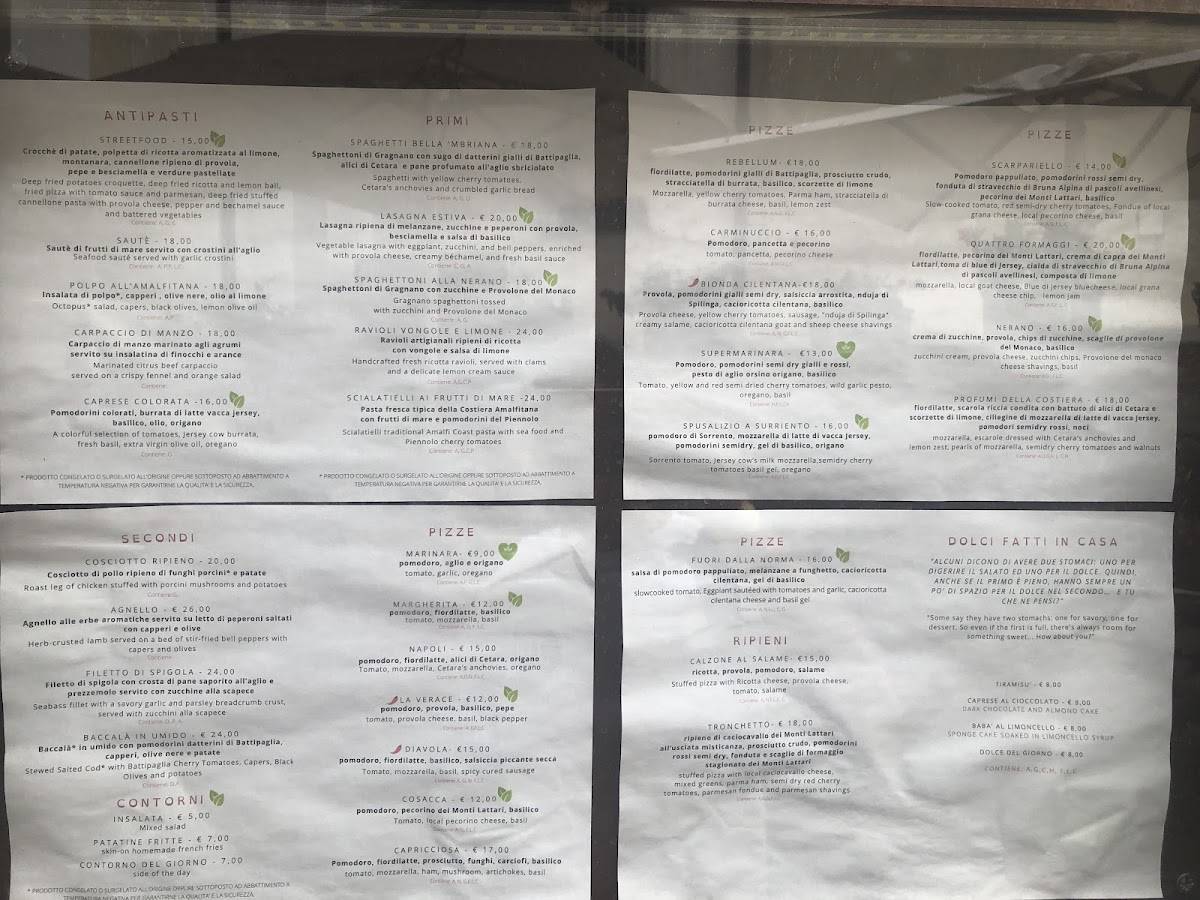 ANTIPASTI
STREETFOOD - 15,00
Crocchè di patate, polpetta di ricotta aromatizzata al limone,
montanara, cannellone ripieno di provola,
pepe e besciamella e verdure pastellate
Deep fried potatoes croquette, deep fried ricotta and lemon ball,
fried pizza with tomato sauce and parmesan, deep fried stuffed
cannellone pasta with provola cheese, pepper and bechamel sauce
and battered vegetables
SAUTÈ - 18,00
Sautè di frutti di mare servito con crostini all'aglio
Seafood sautè served with garlic crostini
POLPO ALL'AMALFITANA - 18,00
Insalata di polpo*, capperi , olive nere, olio al limone
Octopus* salad, capers, black olives, lemon olive oil
CARPACCIO DI MANZO - 18,00
Carpaccio di manzo marinato agli agrumi
servito su insalatina di finocchi e arance
Marinated citrus beef carpaccio
served on a crispy fennel and orange salad
CAPRESE COLORATA -16,00
Pomodorini colorati, burrata di latte vacca jersey,
basilico, olio, origano
A colorful selection of tomatoes, Jersey cow burrata,
fresh basil, extra virgin olive oil, oregano
* PRODOTTO CONGELATO O SURGELATO ALL'ORIGINE OPPURE SOTTOPOSTO AD ABBATTIMENTO A
TEMPERATURA NEGATIVA PER GARANTIRNE LA QUALITA' E LA SICUREZZA.
PRIMI
SPAGHETTI BELLA 'MBRIANA - € 18,00
Spaghettoni di Gragnano con sugo di datterini gialli di Battipaglia,
alici di Cetara e pane profumato all'aglio sbriciolato
Spaghetti with yellow cherry tomatoes,
Cetara's anchovies and crumbled garlic bread
LASAGNA ESTIVA - € 20,00
Lasagna ripiena di melanzane, zucchine e peperoni con provola,
besciamella e salsa di basilico
Vegetable lasagna with eggplant, zucchini, and bell peppers, enriched
with provola cheese, creamy béchamel, and fresh basil sauce
SPAGHETTONI ALLA NERANO - 18,00
Spaghettoni di Gragnano con zucchine e Provolone del Monaco
Gragnano spaghettoni tossed
with zucchini and Provolone del Monaco
RAVIOLI VONGOLE E LIMONE - 24,00
Ravioli artigianali ripieni di ricotta
con vongole e salsa di limone
Handcrafted fresh ricotta ravioli, served with clams
and a delicate lemon cream sauce
SCIALATIELLI AI FRUTTI DI MARE -24,00
Pasta fresca tipica della Costiera Amalfitana
con frutti di mare e pomodorini del Piennolo
Scialatielli traditional Amalfi Coast pasta with sea food and
Piennolo cherry tomatoes
* PRODOTTO CONGELATO O SURGELATO ALL'ORIGINE OPPURE SOTTOPOSTO AD ABBATTIMENTO A
TEMPERATURA NEGATIVA PER GARANTIRNE LA QUALITA' E LA SICUREZZA.
PIZZE
REBELLUM- €18,00
fiordilatte, pomodorini gialli di Battipaglia, prosciutto crudo,
stracciatella di burrata, basilico, scorzette di limone
Mozzarella, yellow cherry tomatoes, Parma ham, stracciatella di
burrata cheese, basil, lemon zest
CARMINUCCIO - € 16,00
Pomodoro, pancetta e pecorino
tomato, pancetta, pecorino cheese
BIONDA CILENTANA-€ 18,00
Provola, pomodorini gialli semi dry, salsiccia arrostita, nduja di
Spilinga, cacioricotta cilentana, basilico
Provola cheese, yellow cherry tomatoes, sausage, "nduja di Spilinga"
creamy salame, cacioricotta cilentana goat and sheep cheese shavings
SUPERMARINARA - €13,00
Pomodoro, pomodorini semi dry gialli e rossi,
pesto di aglio orsino origano, basilico
Tomato, yellow and red semi dried cherry tomatoes, wild garlic pesto,
oregano, basil
SPUSALIZIO A SURRIENTO - 16,00
pomodoro di Sorrento, mozzarella di latte di vacca Jersey,
pomodorini semidry, gel di basilico, origano
Sorrento tomato, jersey cow's milk mozzarella,semidry cherry
tomatoes basil gel, oregano
PIZZE
SCARPARIELLO - € 14,00
Pomodoro pappuliato, pomodorini rossi semi dry,
fonduta di stravecchio di Bruna Alpina di pascoli avellinesi,
pecorino dei Monti Lattari, basilico
Slow-cooked tomato, red semi-dry cherry tomatoes, Fondue of local
grana cheese, local pecorino cheese, basil
QUATTRO FORMAGGI - € 20,00
fiordilatte, pecorino dei Monti Lattari, crema di capra dei Monti
Lattari,toma di blue di Jersey, cialda di stravecchio di Bruna Alpina
di pascoli avellinesi, composta di limone
mozzarella, local goat cheese, Blue di Jersey bluecheese, local grana
cheese chip, lemon jam
NERANO - € 16,00
crema di zucchine, provola, chips di zucchine, scaglie di provolone
del Monaco, basilico
zucchini cream, provola cheese, zucchini chips, Provolone del monaco
cheese shavings, basil
PROFUMI DELLA COSTIERA - € 18,00
fiordilatte, scarola riccia condita con battuto di alici di Cetara e
scorzette di limone, ciliegine di mozzarella di latte di vacca Jersey,
pomodori semidry rossi, noci
mozzarella, escarole dressed with Cetara's anchovies and
lemon zest, pearls of mozzarella, semidry cherry tomatoes and walnuts
SECONDI
COSCIOTTO RIPIENO - 20,00
Cosciotto di pollo ripieno di funghi porcini* e patate
Roast leg of chicken stuffed with porcini mushrooms and potatoes
AGNELLO - € 26,00
Agnello alle erbe aromatiche servito su letto di peperoni saltati
con capperi e olive
Herb-crusted lamb served on a bed of stir-fried bell peppers with
capers and olives
FILETTO DI SPIGOLA - 24,00
Filetto di spigola con crosta di pane saporito all'aglio e
prezzemolo servito con zucchine alla scapece
Seabass fillet with a savory garlic and parsley breadcrumb crust,
served with zucchini alla scapece
BACCALÀ IN UMIDO - € 24,00
Baccalà* in umido con pomodorini datterini di Battipaglia,
capperi, olive nere e patate
Stewed Salted Cod* with Battipaglia Cherry Tomatoes, Capers, Black
Olives and potatoes
CONTORNI
INSALATA - € 5,00
Mixed salad
PATATINE FRITTE - € 7,00
skin-on homemade french fries
CONTORNO DEL GIORNO - 7,00
side of the day
* PRODOTTO CONGELATO O SURGELATO ALL'ORIGINE OPPURE SOTTOPOSTO AD ABBATTIMENTO A
TEMPERATURA NEGATIVA PER GARANTIRNE LA QUALITA' E LA SICUREZZA.
PIZZE
MARINARA- €9,00
pomodoro, aglio e origano
tomato, garlic, oregano
MARGHERITA - €12,00
pomodoro, fiordilatte, basilico
tomato, mozzarella, basil
NAPOLI - € 15,00
pomodoro, fiordilatte, alici di Cetara, origano
Tomato, mozzarella, Cetara's anchovies, oregano
LA VERACE - €12,00
pomodoro, provola, basilico, pepe
tomato, provola cheese, basil, black pepper
DIAVOLA- €15,00
pomodoro, fiordilatte, basilico, salsiccia piccante secca
Tomato, mozzarella, basil, spicy cured sausage
COSACCA - € 12,00
pomodoro, pecorino dei Monti Lattari, basilico
Tomato, local pecorino cheese, basil
CAPRICCIOSA - € 17,00
Pomodoro, fiordilatte, prosciutto, funghi, carciofi, basilico
tomato, mozzarella, ham, mushroom, artichokes, basil
PIZZE
FUORI DALLA NORMA - 16,00
salsa di pomodoro pappuliato, melanzane a funghetto, cacioricotta
cilentana, gel di basilico
slowcooked tomato, Eggplant sautéed with tomatoes and garlic, cacioricotta
cilentana cheese and basil gel
RIPIENI
CALZONE AL SALAME- €15,00
ricotta, provola, pomodoro, salame
Stuffed pizza with Ricotta cheese, provola cheese,
tomato, salame
TRONCHETTO- € 18,00
ripieno di caciocavallo dei Monti Lattari
all'usciata misticanza, prosciutto crudo, pomodorini
rossi semi dry, fonduta e scaglie di formaggio
stagionato dei Monti Lattari
stuffed pizza with local caciocavallo cheese,
mixed greens, parma ham, semi dry red cherry
tomatoes, parmesan fondue and parmesan shavings
DOLCI FATTI IN CASA
"ALCUNI DICONO DI AVERE DUE STOMACI: UNO PER
DIGERIRE IL SALATO ED UNO PER IL DOLCE. QUINDI,
ANCHE SE IL PRIMO È PIENO, HANNO SEMPRE UN
PO' DI SPAZIO PER IL DOLCE NEL SECONDO... E TU
CHE NE PENSI?"
"Some say they have two stomachs; one for savory, one for
dessert. So even if the first is full, there's always room for
something sweet... How about you?"
TIRAMISU' - € 8,00
CAPRESE AL CIOCCOLATO - € 8,00
DARK CHOCOLATE AND ALMOND CAKE
BABA' AL LIMONCELLO - € 8,00
SPONGE CAKE SOAKED IN LIMONCELLO SYRUP
DOLCE DEL GIORNO - € 8,00
CONTIENE: A,G,C,H, F,L,E